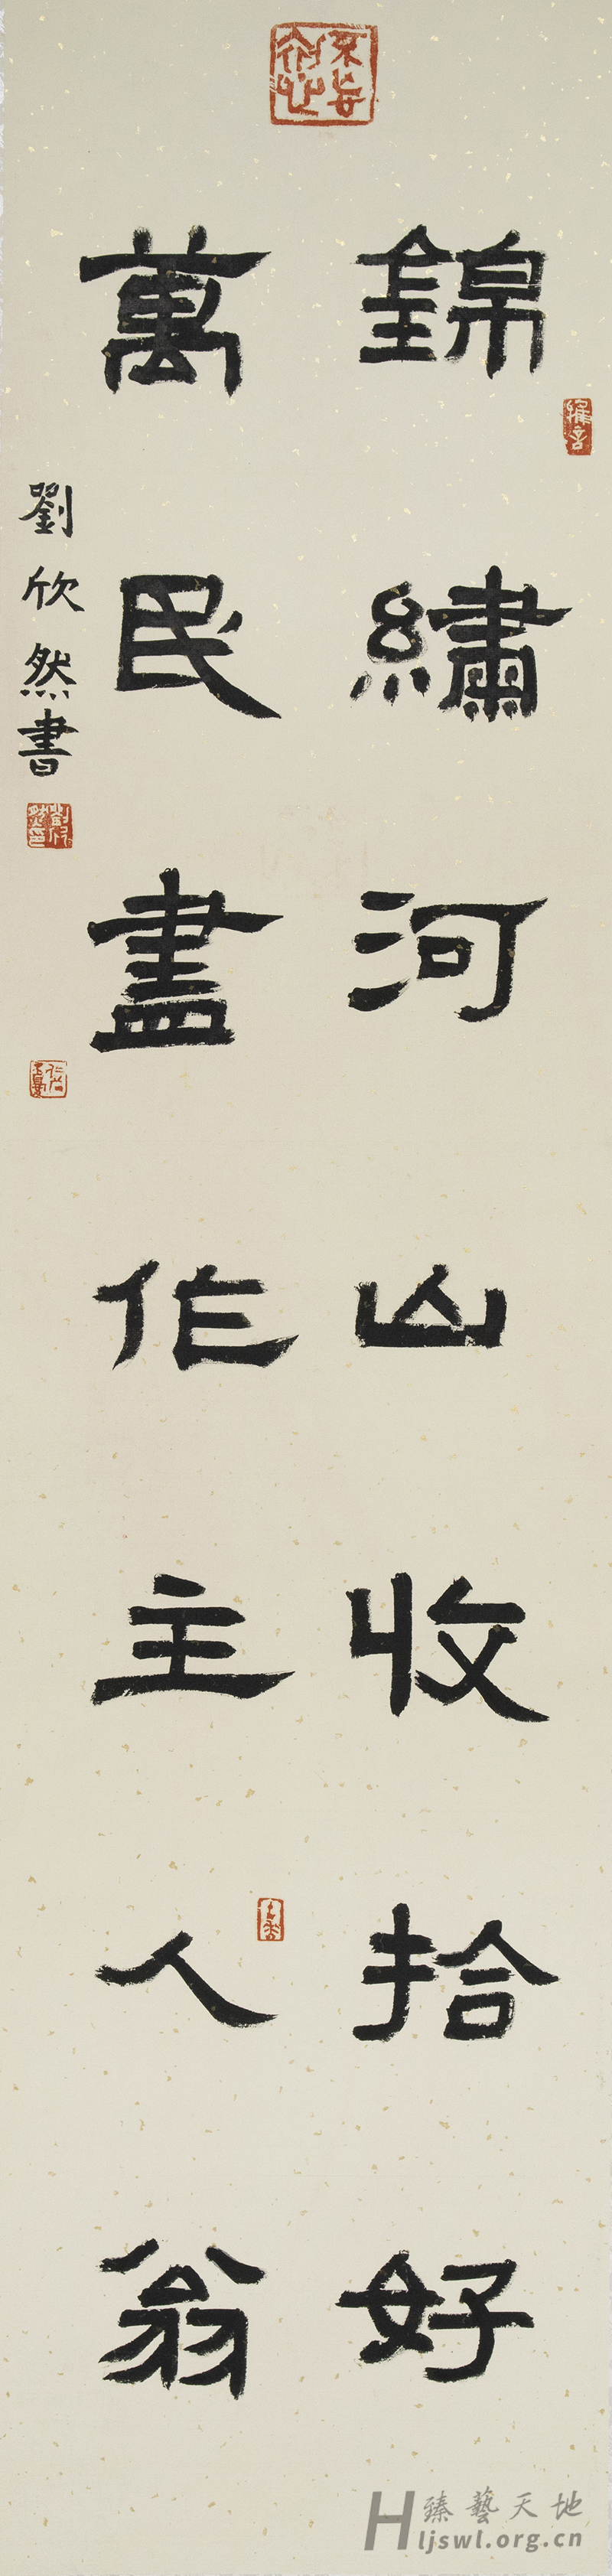 錦繡河山收拾好
萬民盡作主人翁
劉欣然書
臻藝天地
Hljswl.org.cn